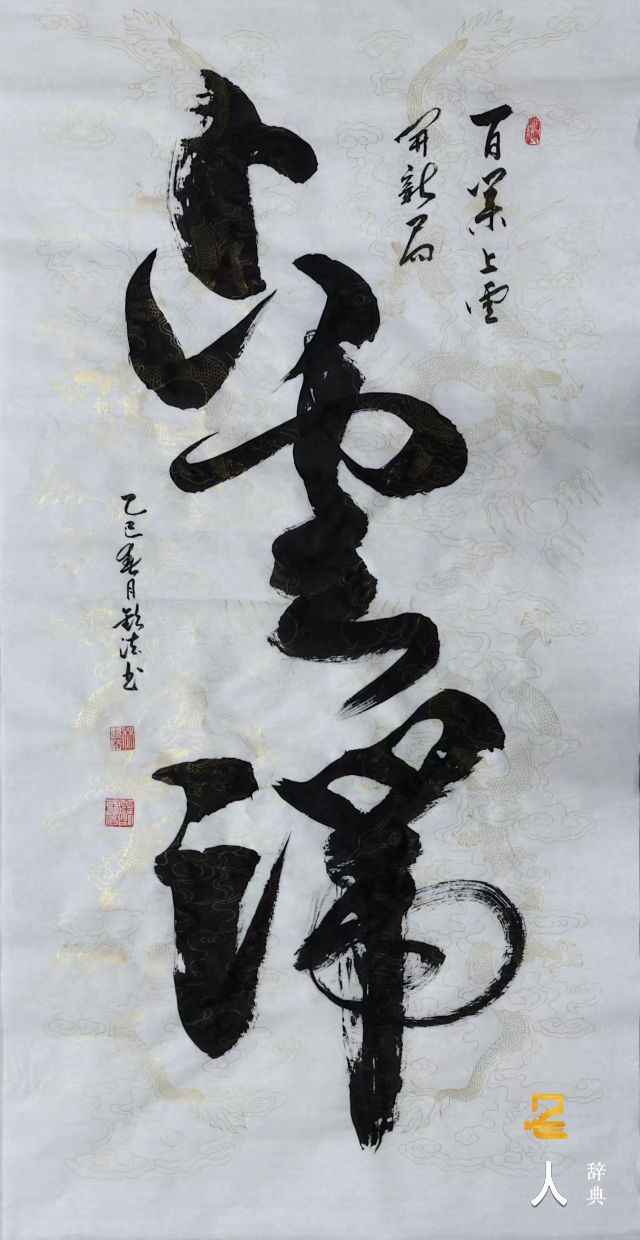 百業上雲
開新局
上雲端
乙巳春月法书
名人
辞典